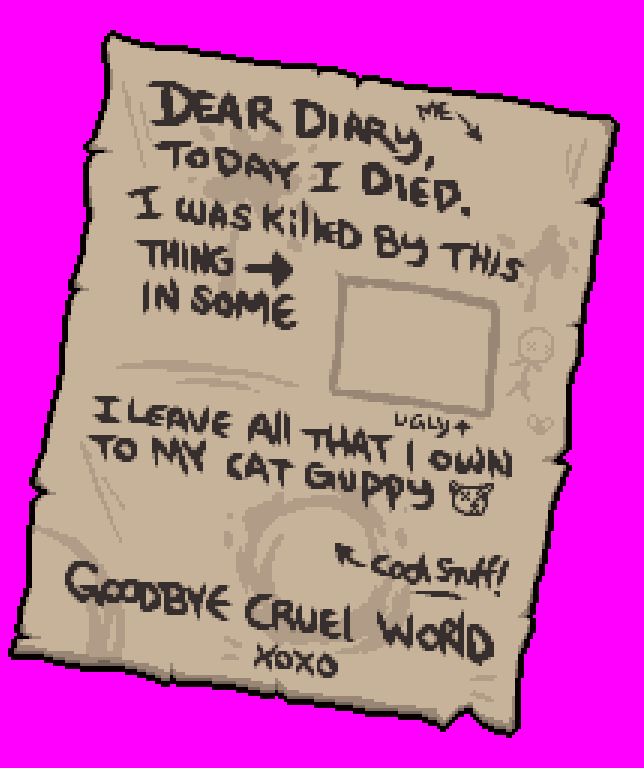 DEAR DIARY,
ME
TODAY I DIED.
I WAS KillED BY THIS
THING
IN SOME
UGLY
I LEAVE All THAT I OWN
TO MY CAT GUPPY
Cool Stuff!
GOODBYE CRUEl WORlD
XOXO